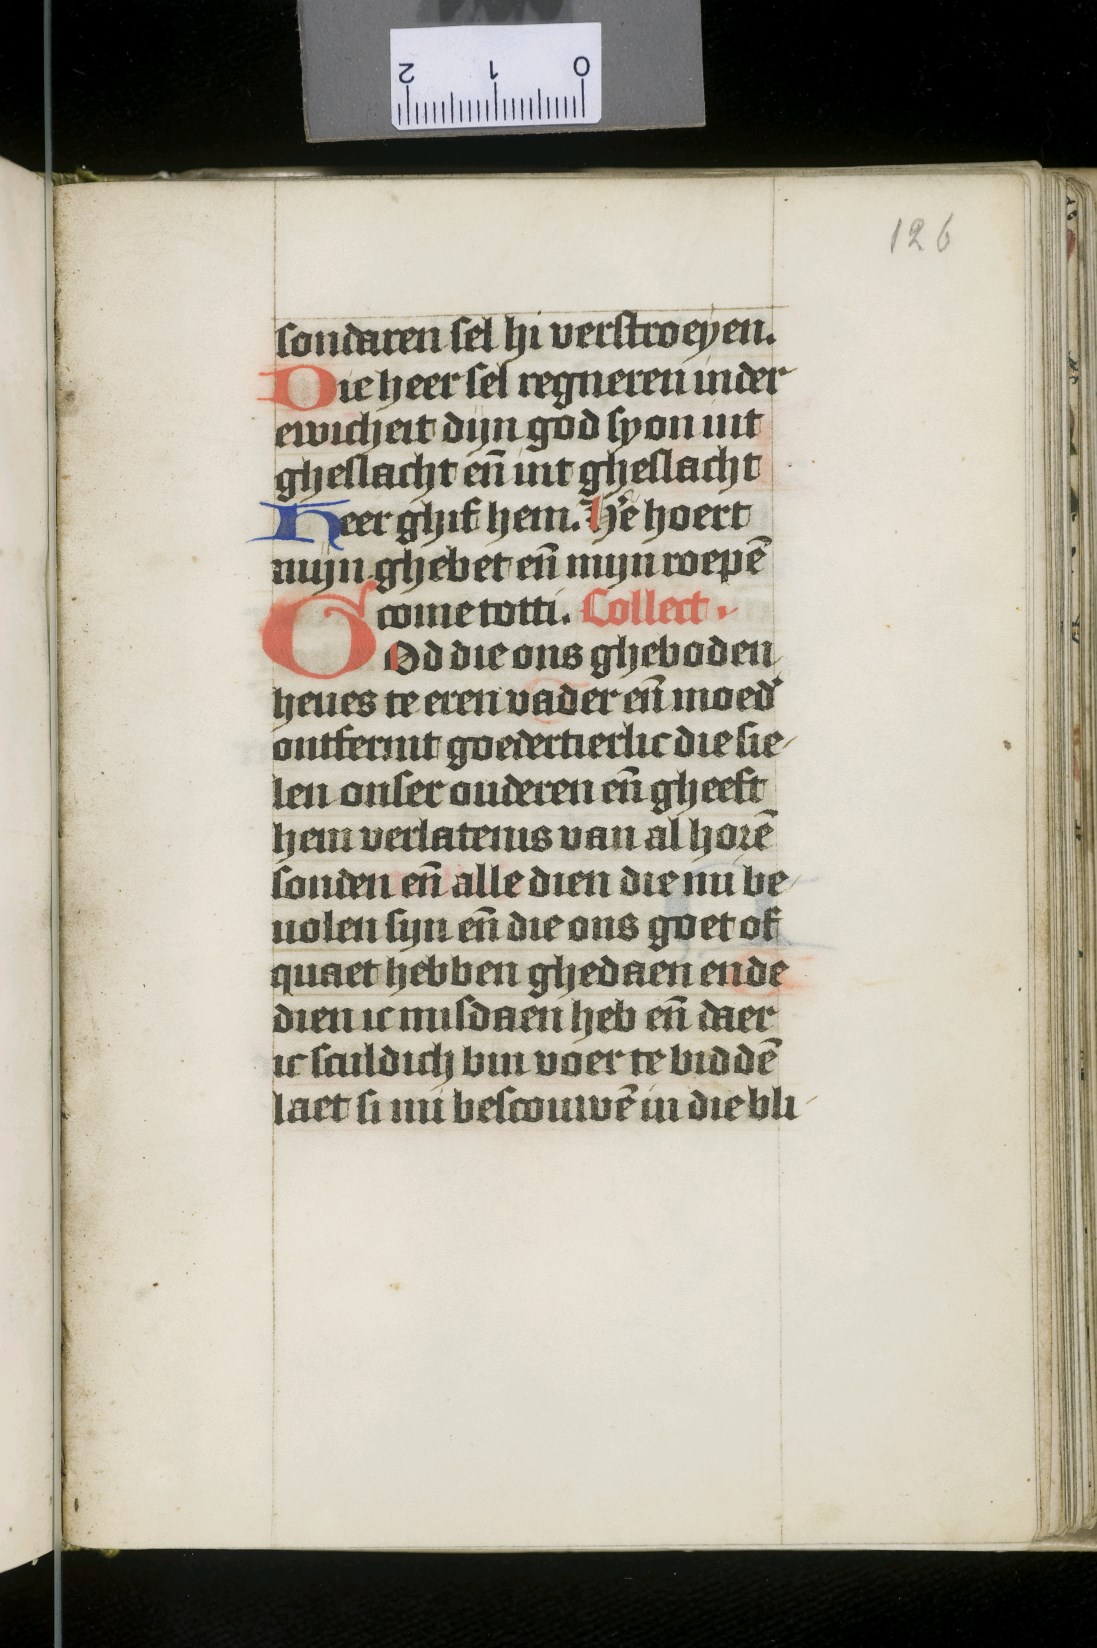 2 1 0
126
sondaren sel hi verstroeyen.
Die heer sel regneren inder
ewicheit dijn god syon uut
gheslacht en̄ uut gheslacht
Heer ghif hem. H'e hoert
mijn ghebet en̄ mijn roepē
come totti. Collect.
GOd die ons gheboden
heues te eren vader en̄ moed'
ontfermt goedertierlic die sie
len onser ouderen en̄ gheeft
hem verlatenis van al horē
sonden en̄ alle dien die mi be
uolen sijn en̄ die ons goet of
quaet hebben ghedaen ende
dien ic misdaen heb en̄ daer
ic sculdich bin voer te biddē
laet si mi bescouwē in die bli